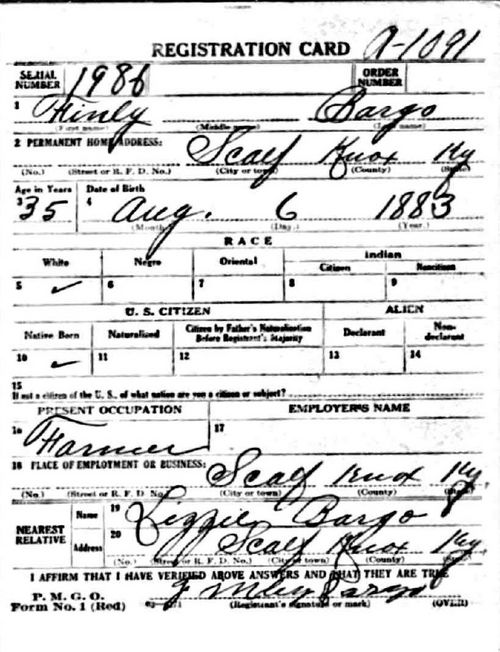 REGISTRATION CARD A-1091
SERIAL NUMBER 1986 ORDER NUMBER
1 Finly Bargo
(First name) (Middle name) (Last name)
2 PERMANENT HOME ADDRESS: Scalf Knox Ky
(No.) (Street or R. F. D. No.) (City or town) (County) (State)
Age in Years Date of Birth
3 35 4 Aug. 6 1883
(Month) (Day) (Year)
RACE
White Negro Oriental Indian
Citizen Noncitizen
5 ✓ 6 7 8 9
U. S. CITIZEN ALIEN
Native Born Naturalized Citizen by Father's Naturalization Before Registrant's Majority Declarant Non-declarant
10 ✓ 11 12 13 14
15
If not a citizen of the U. S., of what nation are you a citizen or subject?
PRESENT OCCUPATION EMPLOYER'S NAME
16 Farmer 17
18 PLACE OF EMPLOYMENT OR BUSINESS: Scalf Knox Ky.
(No.) (Street or R. F. D. No.) (City or town) (County) (State)
NEAREST RELATIVE Name 19 Lizzie Bargo
Address 20 Scalf Knox Ky
(No.) (Street or R. F. D. No.) (City or town) (County) (State)
I AFFIRM THAT I HAVE VERIFIED ABOVE ANSWERS AND THAT THEY ARE TRUE
P. M. G. O.
Form No. 1 (Red) Bargo
(Registrant's signature or mark) (OVER)